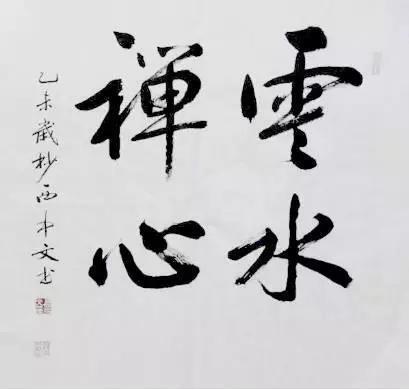 雲水
禪心
乙未歲杪西中文书